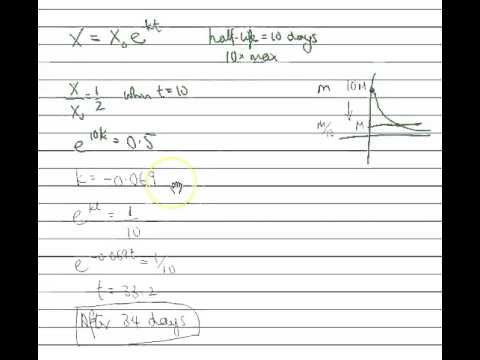 X = X₀e^kt
half-life = 10 days
10 × max
X/X₀ = 1/2 when t = 10
e^10k = 0.5
k = -0.069
e^kt = 1/10
e^-0.069t = 1/10
t = 33.2
After 34 days
m 10M
M/10 M